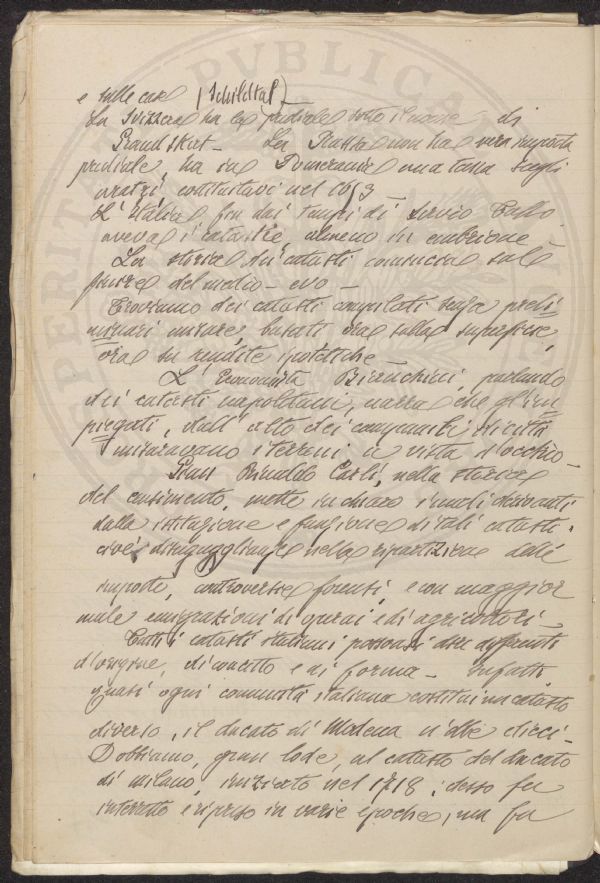 e sulle case (Schildtal)
La Svizzera ha la prediale sotto il nome di
Grundskut - La Russia non ha vera imposta
prediale, ha in Pomerania una tassa sugli
costituitavi nel 1653
L'Italia, fin dai tempi di Servio Tullo
aveva i catasti, almeno in embrione
La storia dei catasti comincia sul
finire del medio-evo -
Troviamo dei catasti compilati senza preli
minari misure, basati ora sulla superficie,
ora su rendite ipotetiche
L'Economista Bianchini, parlando
dei catasti napoletani, narra che gl'im
piegati, dall'alto dei campanili di città
misuravano i terreni, a vista d'occhio -
Gian Rinaldo Carli, nella storia
del censimento, mette in chiaro i mali derivanti
dalla istituzione e funzione di tali catasti:
cioè, disuguaglianze nella ripartizione delle
imposte, controversie forensi, e con maggior
male emigrazioni di operai e di agricoltori -
Tutti i catasti italiani possonsi dire differenti
d'origine, di concetto e di forma - Infatti
quasi ogni comunità italiana costituì un catasto
diverso, il ducato di Modena n'ebbe dieci -
Dobbiamo, gran lode, al catasto del ducato
di Milano, iniziato nel 1718; desso fu
interrotto e ripreso in varie epoche, ma fu
PVBLICA